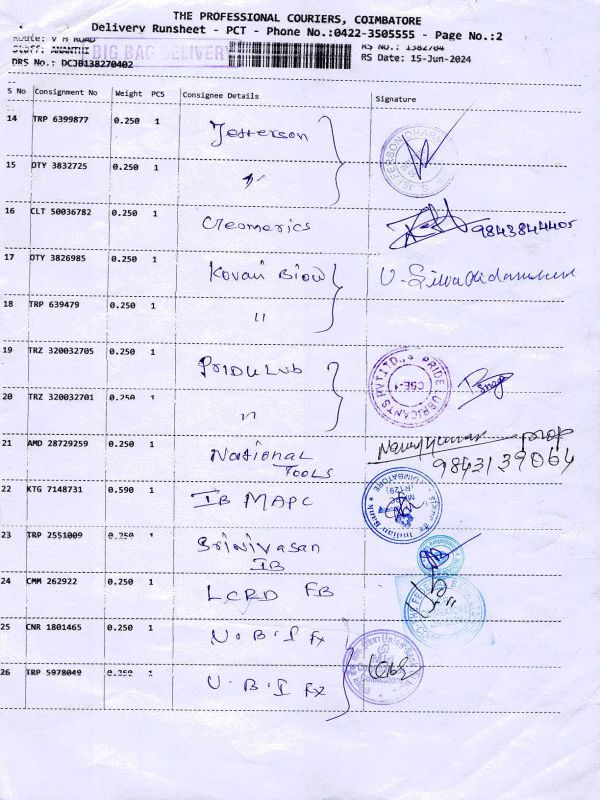 THE PROFESSIONAL COURIERS, COIMBATORE
Delivery Runsheet - PCT - Phone No.:0422-3505555 - Page No.:2
Route: V H ROAD RS NO.: 1382704
Staff: ANANTHI BIG BAG DELIVERY RS Date: 15-Jun-2024
DRS No.: DCJB138270402
S No Consignment No Weight PCS Consignee Details Signature
14 TRP 6399877 0.250 1 Jefferson
15 OTY 3832725 0.250 1 "
16 CLT 50036782 0.250 1 Creomerics 9843844405
17 OTY 3826985 0.250 1 Kovan Biow
18 TRP 639479 0.250 1 "
19 TRZ 320032705 0.250 1 Pride Lub PRIDE LUBRICANTS PVT.LTD.,
20 TRZ 320032701 0.250 1 "
21 AMD 28729259 0.250 1 National Tools prop 9843139064
22 KTG 7148731 0.590 1 IB MAPC Indian Bank
23 TRP 2551009 0.250 1 Srinivasan IB
24 CMM 262922 0.250 1 LCRD FB
25 CNR 1801465 0.250 1 U.B.I Fx
26 TRP 5978049 0.250 1 U.B.I Fx